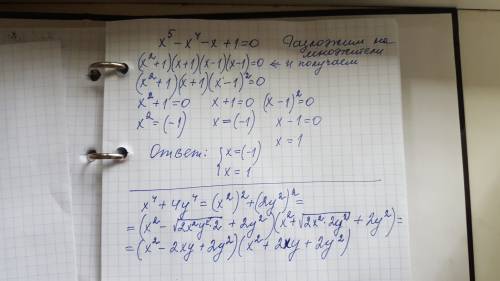 x⁵-x⁴-x+1=0 Разложим на множители
(x²+1)(x+1)(x-1)(x-1)=0 ← и получаем
(x²+1)(x+1)(x-1)²=0
x²+1=0 x+1=0 (x-1)²=0
x²=(-1) x=(-1) x-1=0
x=1
Ответ: { x=(-1)
x=1
x⁴+4y⁴=(x²)²+(2y²)²=
=(x²-√2x²y²·2+2y²)(x²+√2x²·2y²+2y²)=
=(x²-2xy+2y²)(x²+2xy+2y²)